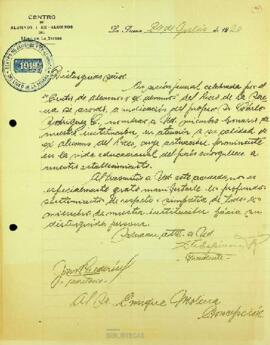 CENTRO
DE
ALUMNOS Y EX-ALUMNOS
DEL
LICEO DE LA SERENA
La Serena, 20 de Junio de 192
1918
Distinguido señor:
En sesión formal celebrada por el
Centro de alumnos y ex alumnos del Liceo de La Serena
se acordó, a indicación del profesor
Rodríguez C. nombrar a Ud. miembro honorario de
nuestra institución, en atención a su calidad de
ex alumno del Liceo, cuya actuación prominente
en la vida educacional del país enorgullece a
nuestro establecimiento.
Al transmitir a Ud. este acuerdo, nos es
especialmente grato manifestarle los profundos
sentimientos de respeto y simpatía de los
miembros de nuestra institución hacia su
distinguida persona.
Saludan atte. a Ud.
Presidente
Secretario
Al Sr. Enrique Molina
Concepción
BIBLIOTECAS